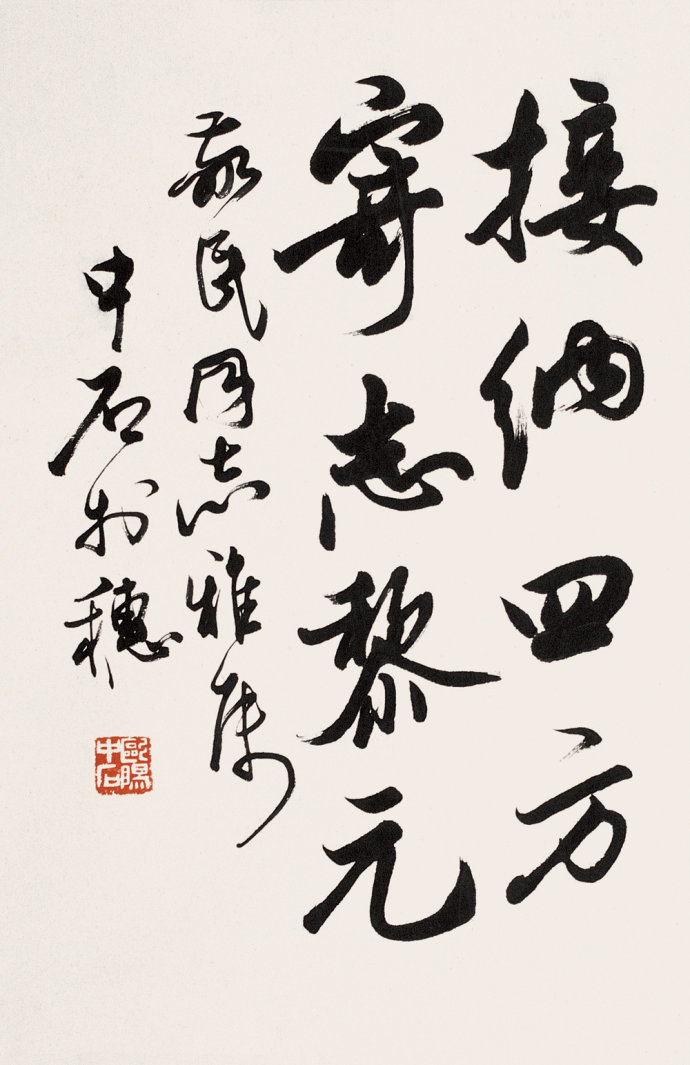 接纳四方
寄志黎元
敬民同志雅属
中石於穗
歐陽中石